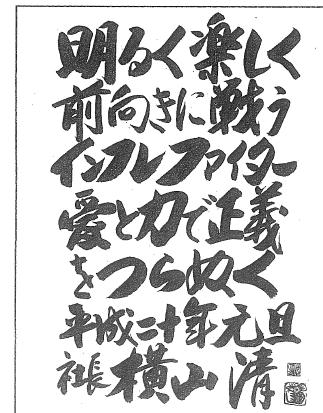 明るく楽しく
前向きに戦う
インフレファイター
愛と力で正義
をつらぬく
平成二十年元旦
社長 横山 清